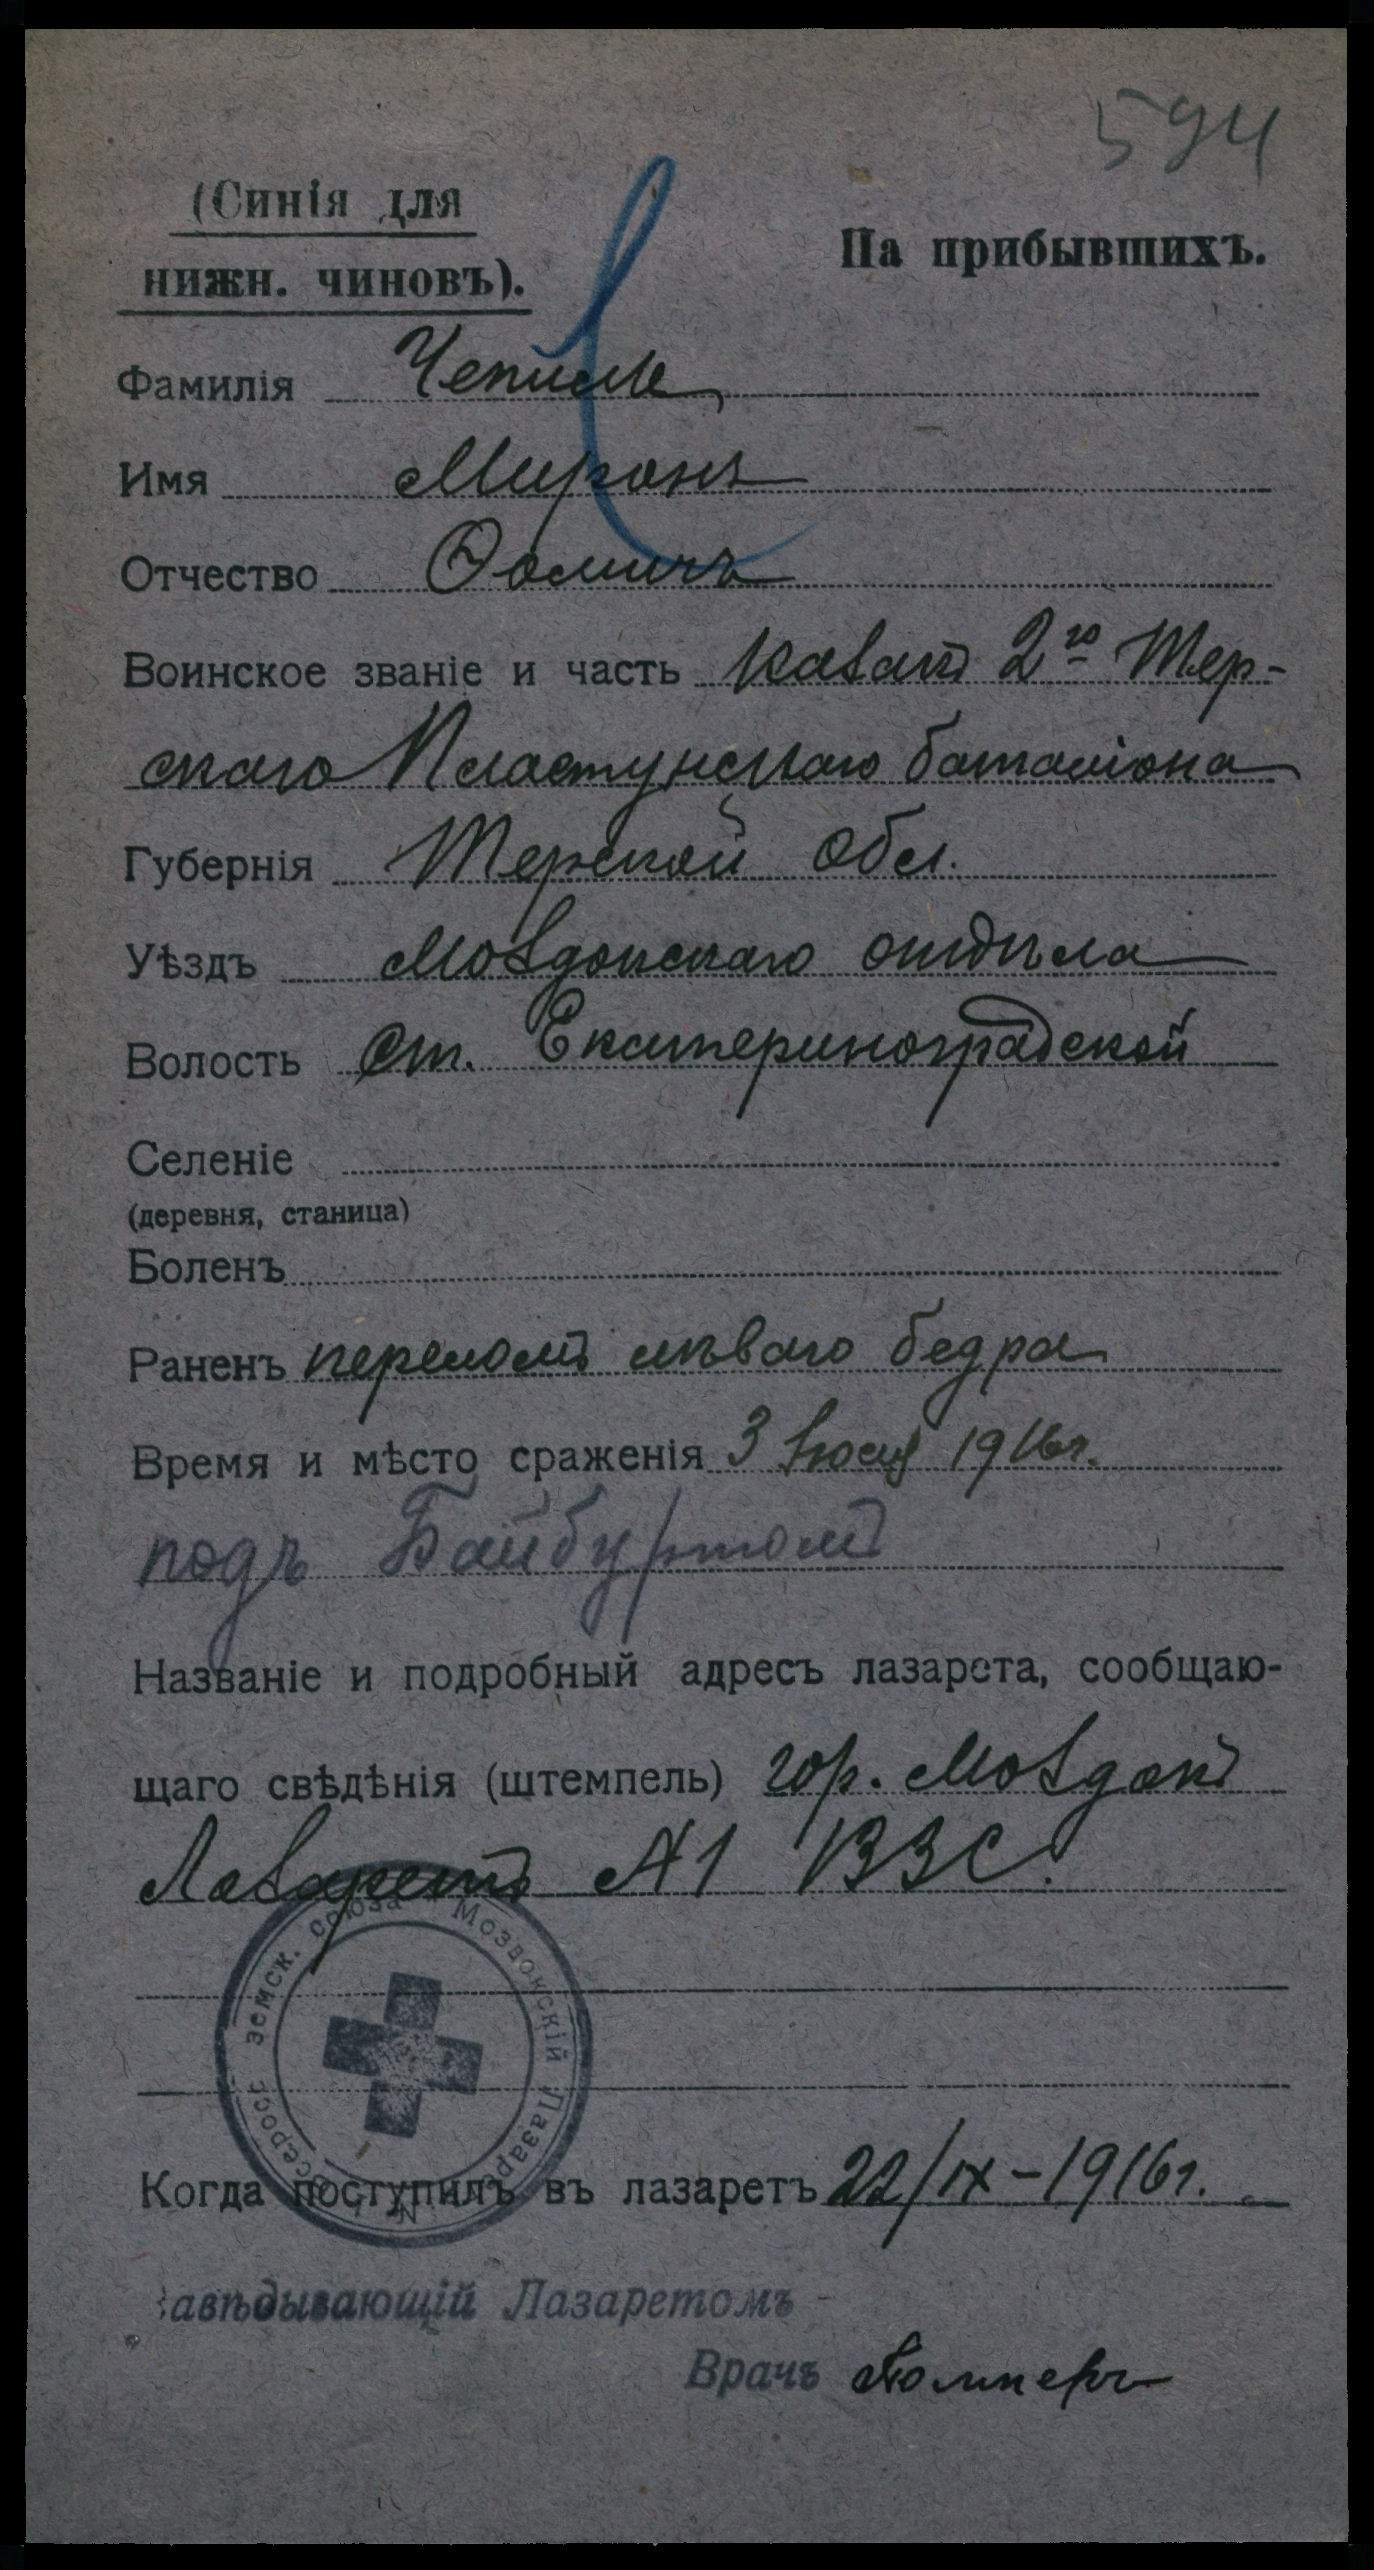 594
(Синія для
нижн. чиновъ).
На прибывшихъ.
Фамилія
Имя Миронъ
Отчество Ѳомичъ
Воинское званіе и часть казакъ 2го Тер-
скаго Пластунскаго баталіона
Губернія Терской обл.
Уѣздъ Моздокскаго отдѣла
Волость ст. Екатериноградской
Селеніе
(деревня, станица)
Боленъ
Раненъ переломъ лѣваго бедра
Время и мѣсто сраженія 3 Іюля 1916г.
подъ Байбуртомъ
Названіе и подробный адресъ лазарета, сообщаю-
щаго свѣдѣнія (штемпель) гор. Моздокъ
Лазаретъ №1 ВЗС.
Всеросс. земск. союза Моздокскій Лазаретъ №
Когда поступилъ въ лазаретъ 22/IX-1916г.
Завѣдывающій Лазаретомъ
Врачъ